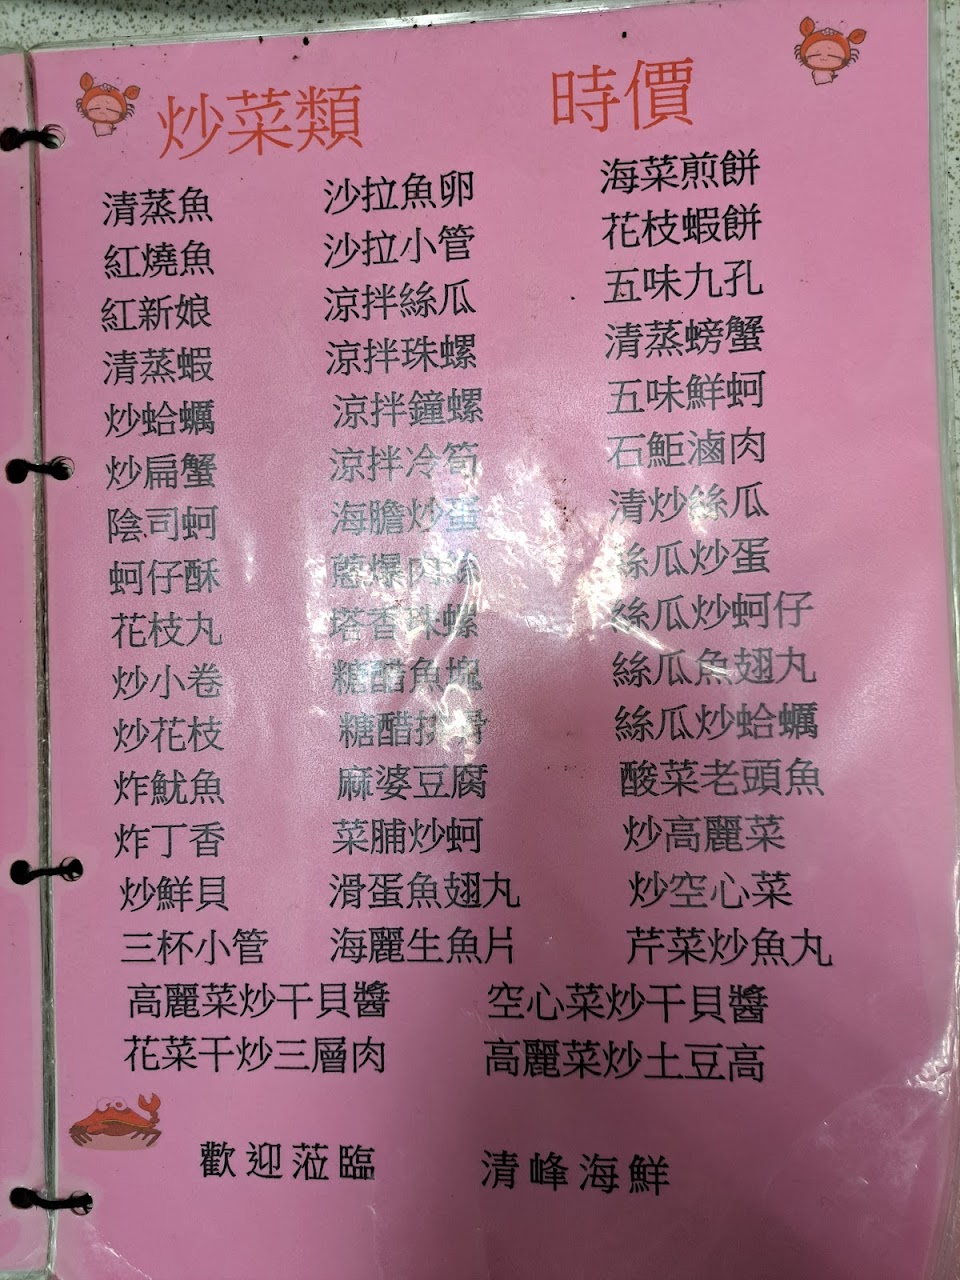 炒菜類 時價
清蒸魚 沙拉魚卵 海菜煎餅
紅燒魚 沙拉小管 花枝蝦餅
紅新娘 涼拌絲瓜 五味九孔
清蒸蝦 涼拌珠螺 清蒸螃蟹
炒蛤蠣 涼拌鐘螺 五味鮮蚵
炒扁蟹 涼拌冷筍 石鮔滷肉
陰司蚵 海膽炒蛋 清炒絲瓜
蚵仔酥 蔥爆肉絲 絲瓜炒蛋
花枝丸 塔香珠螺 絲瓜炒蚵仔
炒小卷 糖醋魚塊 絲瓜魚翅丸
炒花枝 糖醋排骨 絲瓜炒蛤蠣
炸魷魚 麻婆豆腐 酸菜老頭魚
炸丁香 菜脯炒蚵 炒高麗菜
炒鮮貝 滑蛋魚翅丸 炒空心菜
三杯小管 海麗生魚片 芹菜炒魚丸
高麗菜炒干貝醬 空心菜炒干貝醬
花菜干炒三層肉 高麗菜炒土豆高
歡迎蒞臨 清峰海鮮